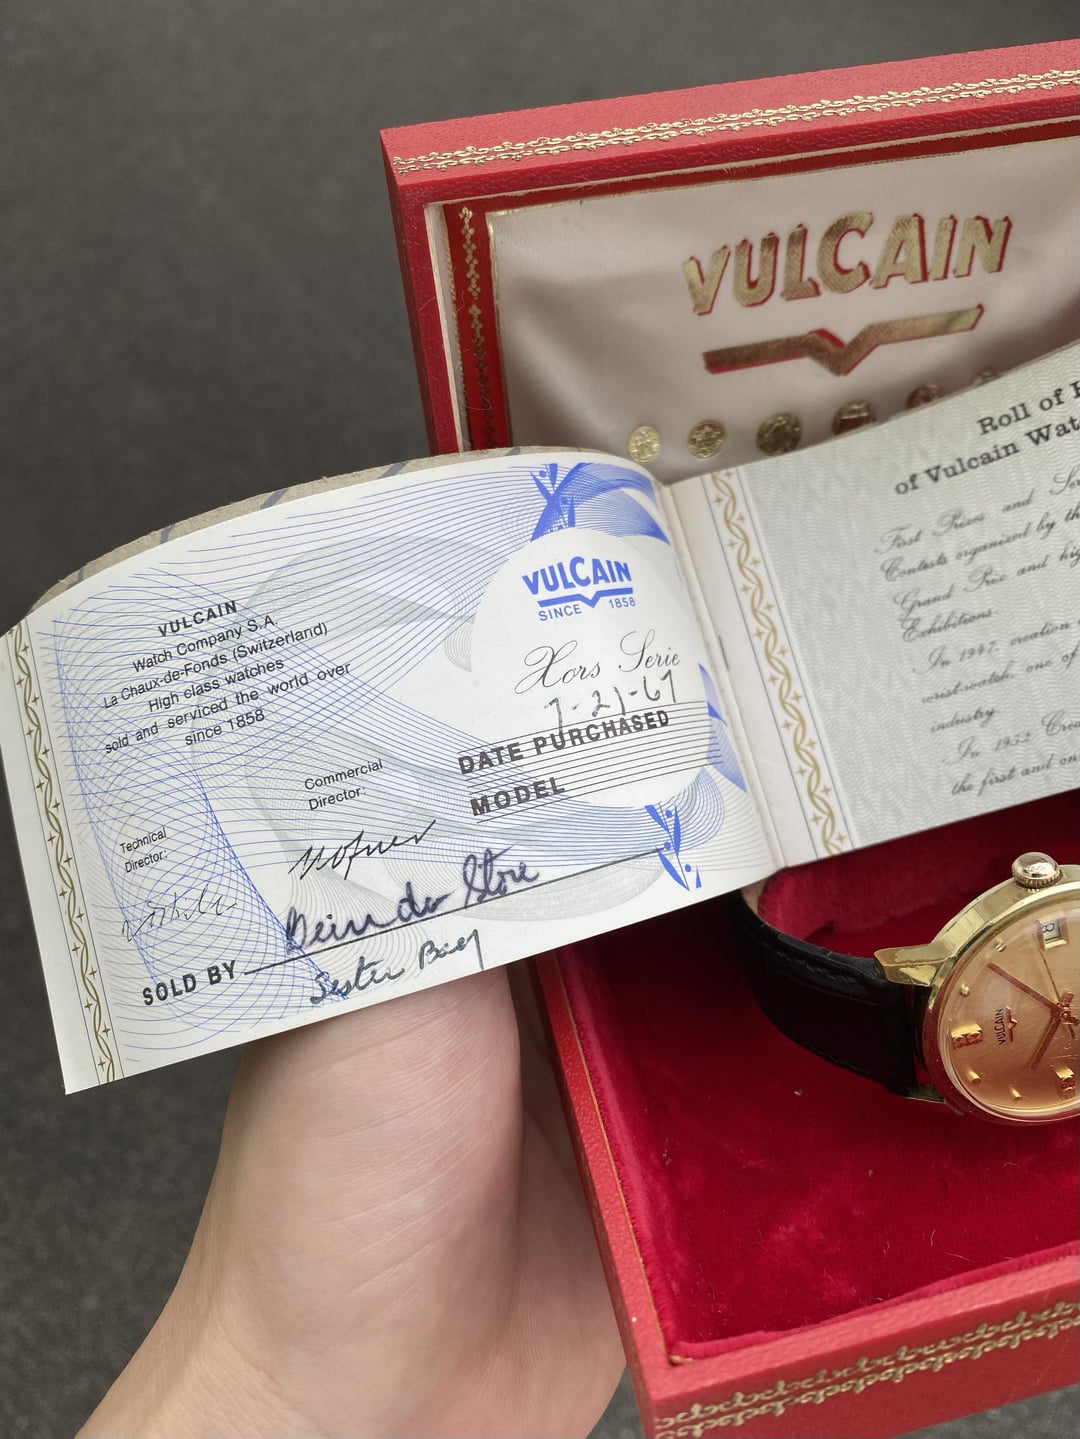 VULCAIN
VULCAIN
Watch Company S.A.
La Chaux-de-Fonds (Switzerland)
High class watches
sold and serviced the world over
since 1858
Technical
Director:
Commercial
Director:
VULCAIN
SINCE 1858
Hors Serie
7-21-67
DATE PURCHASED
MODEL
SOLD BY
Store
Sister Bay
Roll of
of Vulcain Wat
First Prizes and Ser
Contests organized by th
Grand Prix and hig
Exhibitions.
In 1947, creation
wrist-watch, one of
industry.
In 1952 Crea
the first and on
VULCAIN